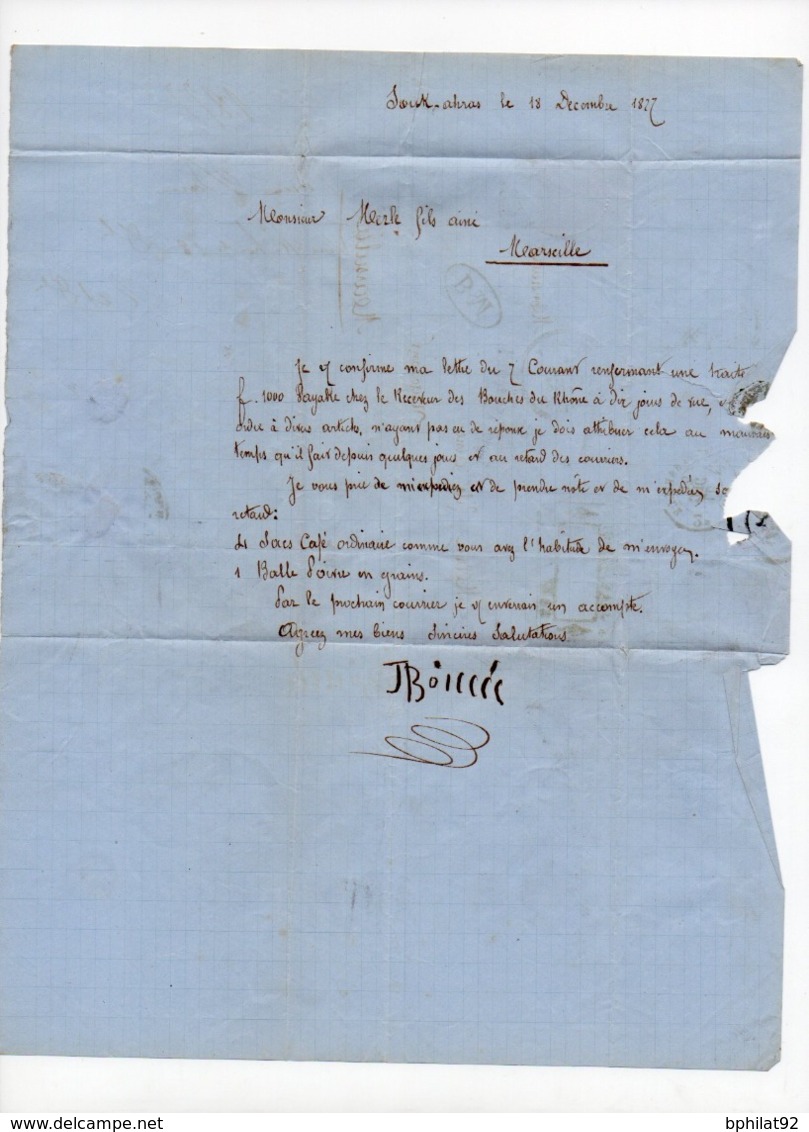 Souk-ahras le 18 Décembre 1877
Monsieur Merle fils ainé
Marseille
Je v confirme ma lettre du 7 Courant renfermant une traite
f. 1000 Payable chez le Receveur des Bouches du Rhône à dix jours de vue,
ordre à divers articles, n'ayant pas eu de réponse je dois attribuer cela au mauvais
temps qu'il fait depuis quelques jours et au retard des courriers.
Je vous prie de m'expediez et de prendre note et de m'expediez
retard:
4 Sacs Café ordinaire comme vous avez l'habitude de m'envoyer.
1 Balle Poivre en grains.
Par le prochain courrier je v enverrais un accompte.
Agréez mes biens Sincères Salutations.
B.M
bphilat92